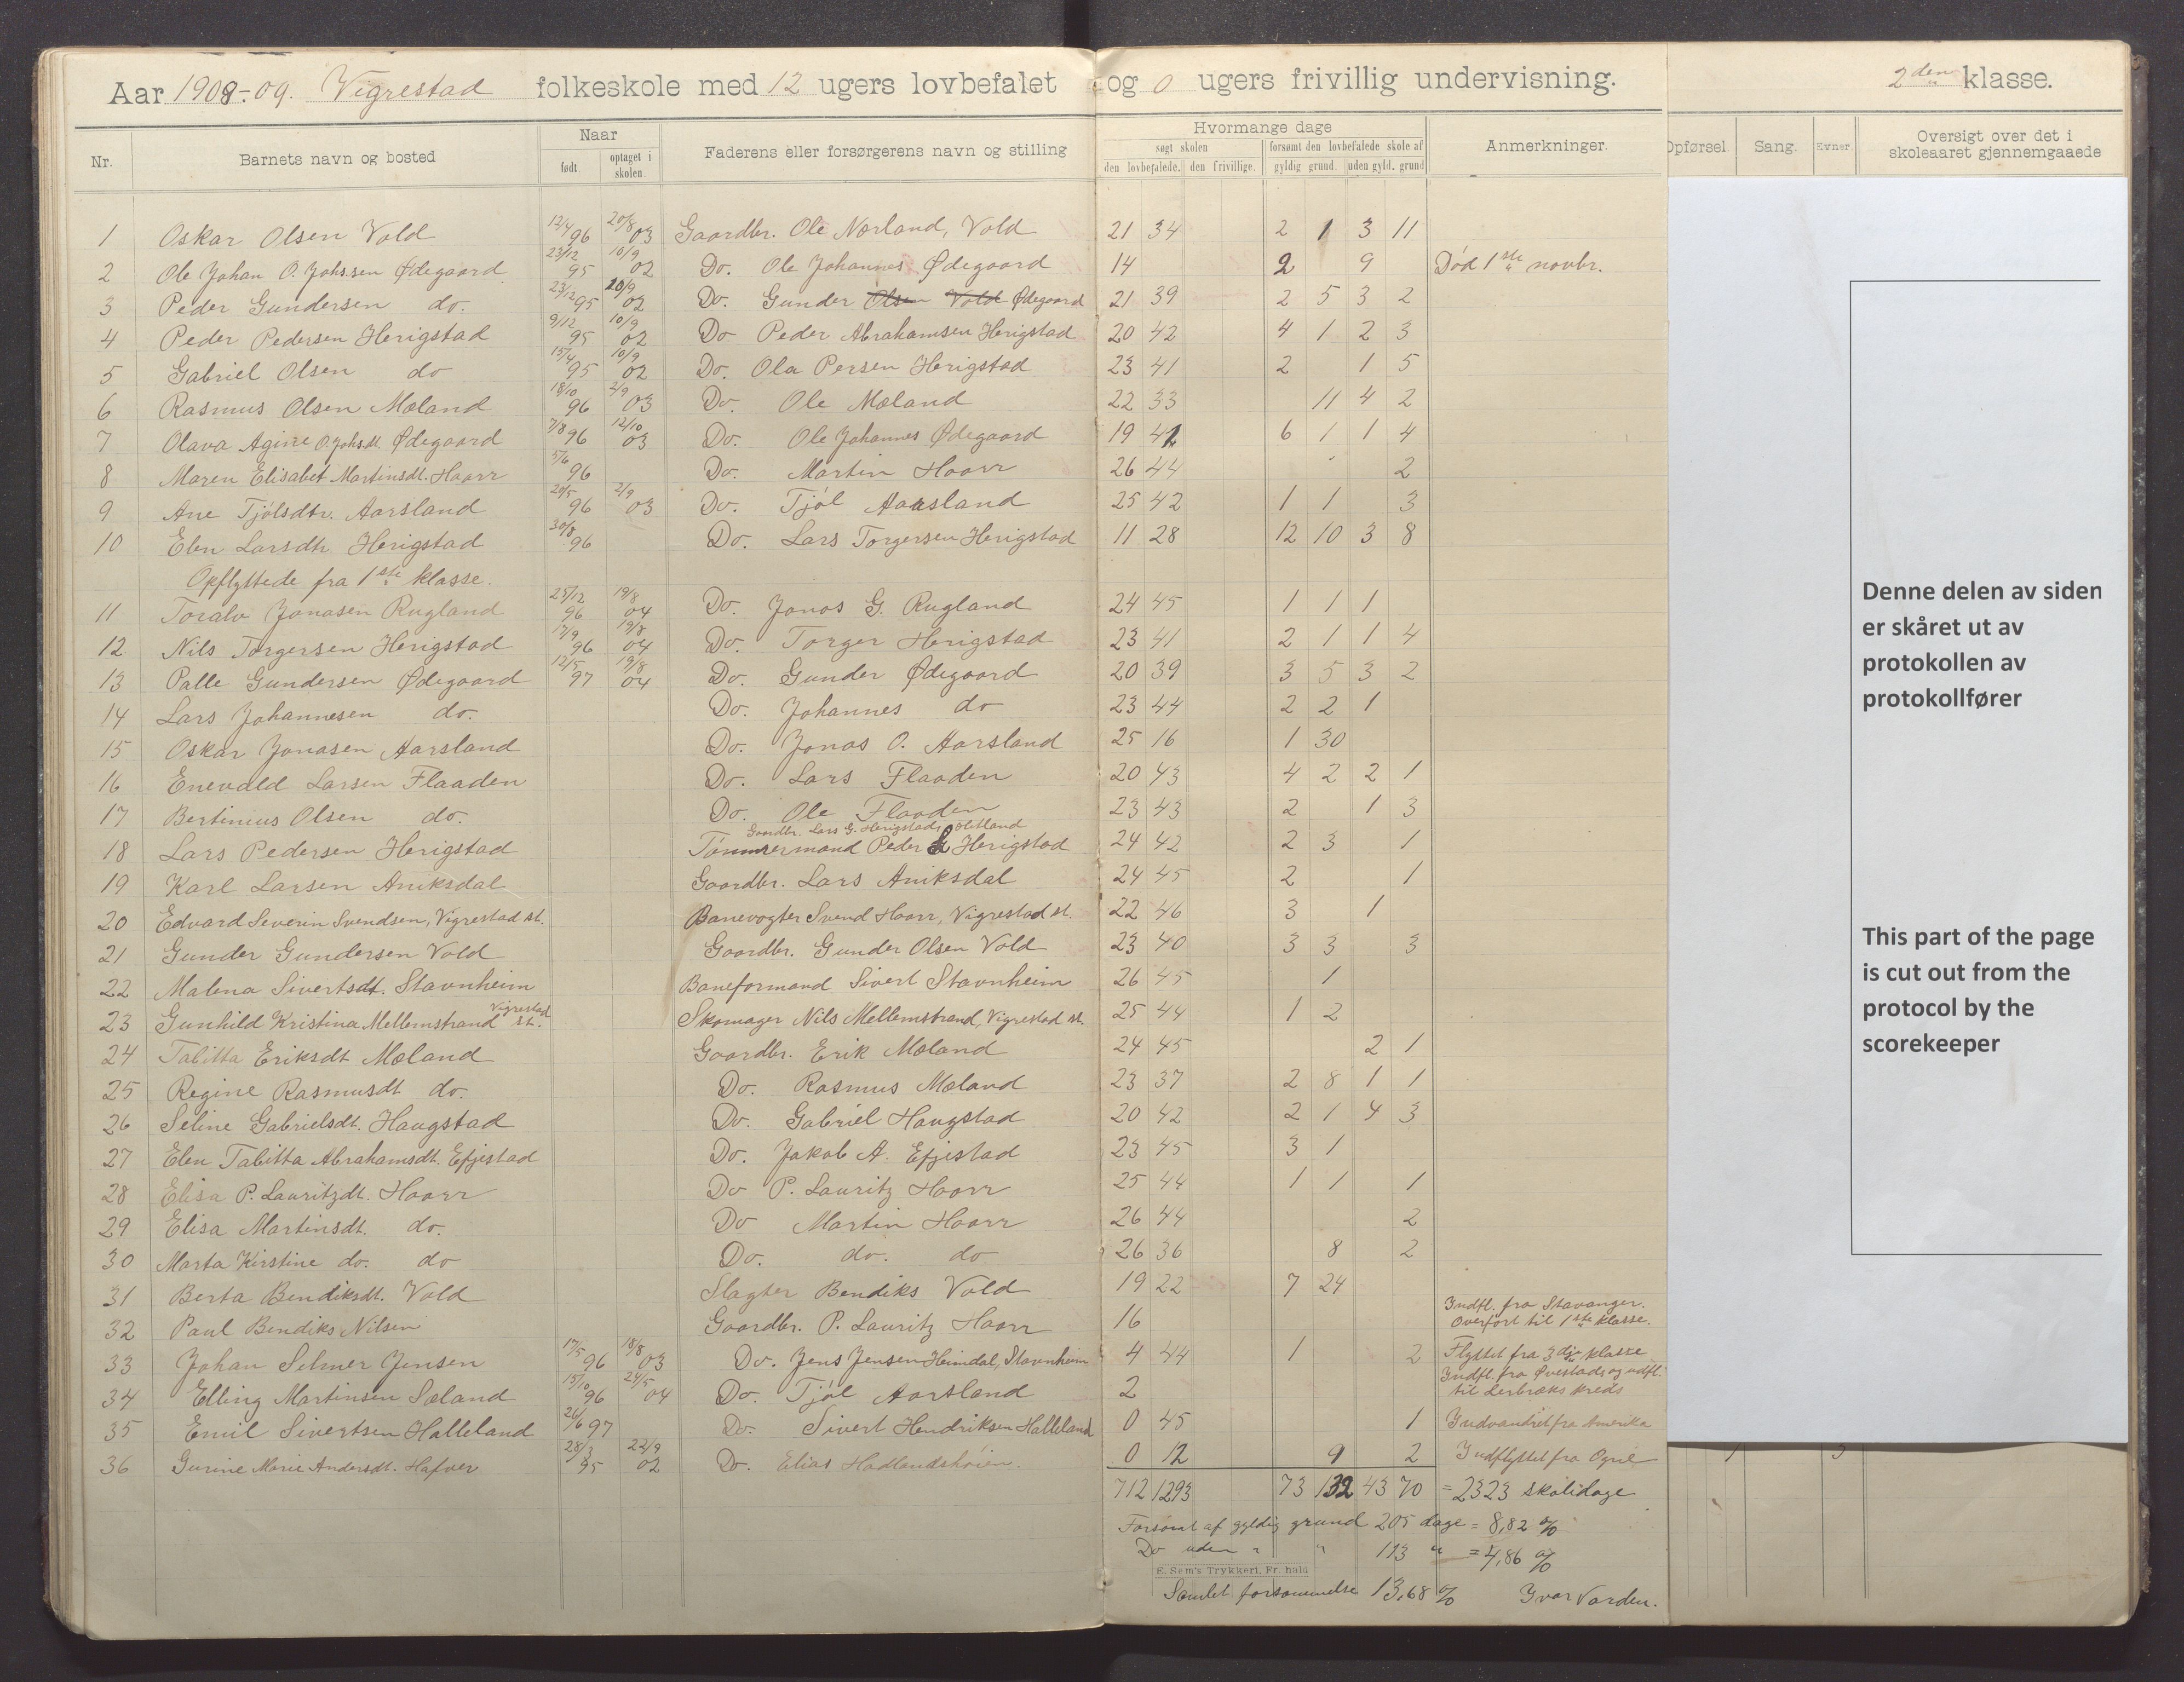 Aar 1908-09. Vigrestad folkeskole med 12 ugers lovbefalet og 0 ugers frivillig undervisning. 2den klasse.
Nr. Barnets navn og bosted Naar født. optaget i skolen. Faderens eller forsørgerens navn og stilling Hvormange dage søgt skolen den lovbefalede. den frivillige. forsømt den lovbefalede skole af gyldig grund. uden gyld. grund Anmerkninger. Opførsel. Sang. Evner Oversigt over det i skoleaaret gjennemgaaede
1 Oskar Olsen Vold 12/4 96 20/8 03 Gaardbr. Ole Norland, Vold 21 34 2 1 3 11
2 Ole Johan O. Johs.sen Ødegaard 23/12 95 10/9 02 Do. Ole Johannes Ødegaard 14 2 9 Død 1ste novbr.
3 Peder Gundersen do. 23/12 95 10/9 02 Do. Gunder Olsen Vold Ødegaard 21 39 2 5 3 2
4 Peder Pedersen Herigstad 9/12 95 10/9 02 Do Peder Abrahamsen Herigstad 20 42 4 1 2 3
5 Gabriel Olsen do 15/4 95 10/9 02 Do. Ola Persen Herigstad 23 41 2 1 5
6 Rasmus Olsen Mæland 18/10 96 2/9 03 Do. Ole Mæland 22 33 11 4 2
7 Olava Agine O. Johsdt. Ødegaard 7/8 96 12/10 03 Do. Ole Johannes Ødegaard 19 42 6 1 1 4
8 Maren Elisabet Martinsdt. Haarr 5/6 96 Do. Martin Haarr 26 44 2
9 Ane Tjölsdtr. Aarsland 29/5 96 2/9 03 Do. Tjöl Aarsland 25 42 1 1 3
10 Elen Larsdtr Herigstad 30/8 96 Do. Lars Torgersen Herigstad 11 28 12 10 3 8
Opflyttede fra 1ste klasse.
11 Toralv Jonasen Rugland 25/12 96 19/8 04 Do. Jonas G. Rugland 24 45 1 1 1
12 Nils Torgersen Herigstad 17/9 96 19/8 04 Do. Torger Herigstad 23 41 2 1 1 4
13 Palle Gundersen Ødegaard 12/5 97 19/8 04 Do. Gunder Ødegaard 20 39 3 5 3 2
14 Lars Johannesen do. Do. Johannes do 23 44 2 2 1
15 Oskar Jonasen Aarsland Do. Jonas O. Aarsland 25 16 1 30
16 Enevald Larsen Flaaden Do. Lars Flaaden 20 43 4 2 2 1
17 Bertinius Olsen do. Do. Ole Flaaden 23 43 2 1 3
Gaardbr. Lars G. Herigstad,
18 Lars Pedersen Herigstad Tömmermand Peder Herigstad 24 42 2 3 1
19 Karl Larsen Aniksdal Gaardbr. Lars Aniksdal 24 45 2 1
20 Edvard Severin Svendsen, Vigrestad st. Banevogter Svend Haarr, Vigrestad st. 22 46 3 1
21 Gunder Gundersen Vold Gaardbr. Gunder Olsen Vold 23 40 3 3 3
22 Malena Sivertsdt. Stavnheim Baneformand Sivert Stavnheim 26 45 1
23 Gunhild Kristina Mellemstrand Vigrestad st. Skomager Nils Mellemstrand, Vigrestad st. 25 44 1 2
24 Tabitta Eriksdt Mæland Gaardbr. Erik Mæland 24 45 2 1
25 Regine Rasmusdt do. Do. Rasmus Mæland 23 37 2 8 1 1
26 Seline Gabrielsdt. Haugstad Do. Gabriel Haugstad 20 42 2 1 4 3
27 Elen Tabitta Abrahamsdt. Efjestad Do. Jakob A. Efjestad 23 45 3 1
28 Elisa P. Lauritzdt. Haarr Do P. Lauritz Haarr 25 44 1 1 1
29 Elisa Martinsdt. do. Do Martin Haarr 26 44 2
30 Marta Kirstine do. do Do. do. do 26 36 8 2
31 Berta Bendiksdt. Vold Slagter Bendiks Vold 19 22 7 24
32 Paul Bendiks Nilsen Gaardbr. P. Lauritz Haarr 16 Indfl. fra Stavanger. Overfört til 1ste klasse.
33 Johan Selmer Jensen 17/5 96 18/8 03 Do. Jens Jensen Heimdal, Stavnheim 4 44 1 2 Flyttet fra 3dje klasse
34 Elling Martinsen Sæland 15/10 96 24/5 04 Do. Tjöl Aarsland 2 Indfl. fra Øvestad og udfl. til kreds
35 Emil Sivertsen Halleland 26/6 97 Do. Sivert Hendriksen Halleland 0 45 1 Indvandret fra Amerika
36 Gurine Marie Andersdt. Hafver 28/3 95 22/9 02 Do. Elias Hadlandshöien. 0 12 9 2 Indflyttet fra
712 1293 73 132 43 70 = 2323 skolidage
Forsömt af gyldig grund 205 dage = 8,82 %
Do uden " " 113 " = 4,86 %
E. Sem's Trykkeri, Fr. hald
Samlet forsømmelse 13,68 % Ivar Varden.
Denne delen av siden
er skåret ut av
protokollen av
protokollfører
This part of the page
is cut out from the
protocol by the
scorekeeper